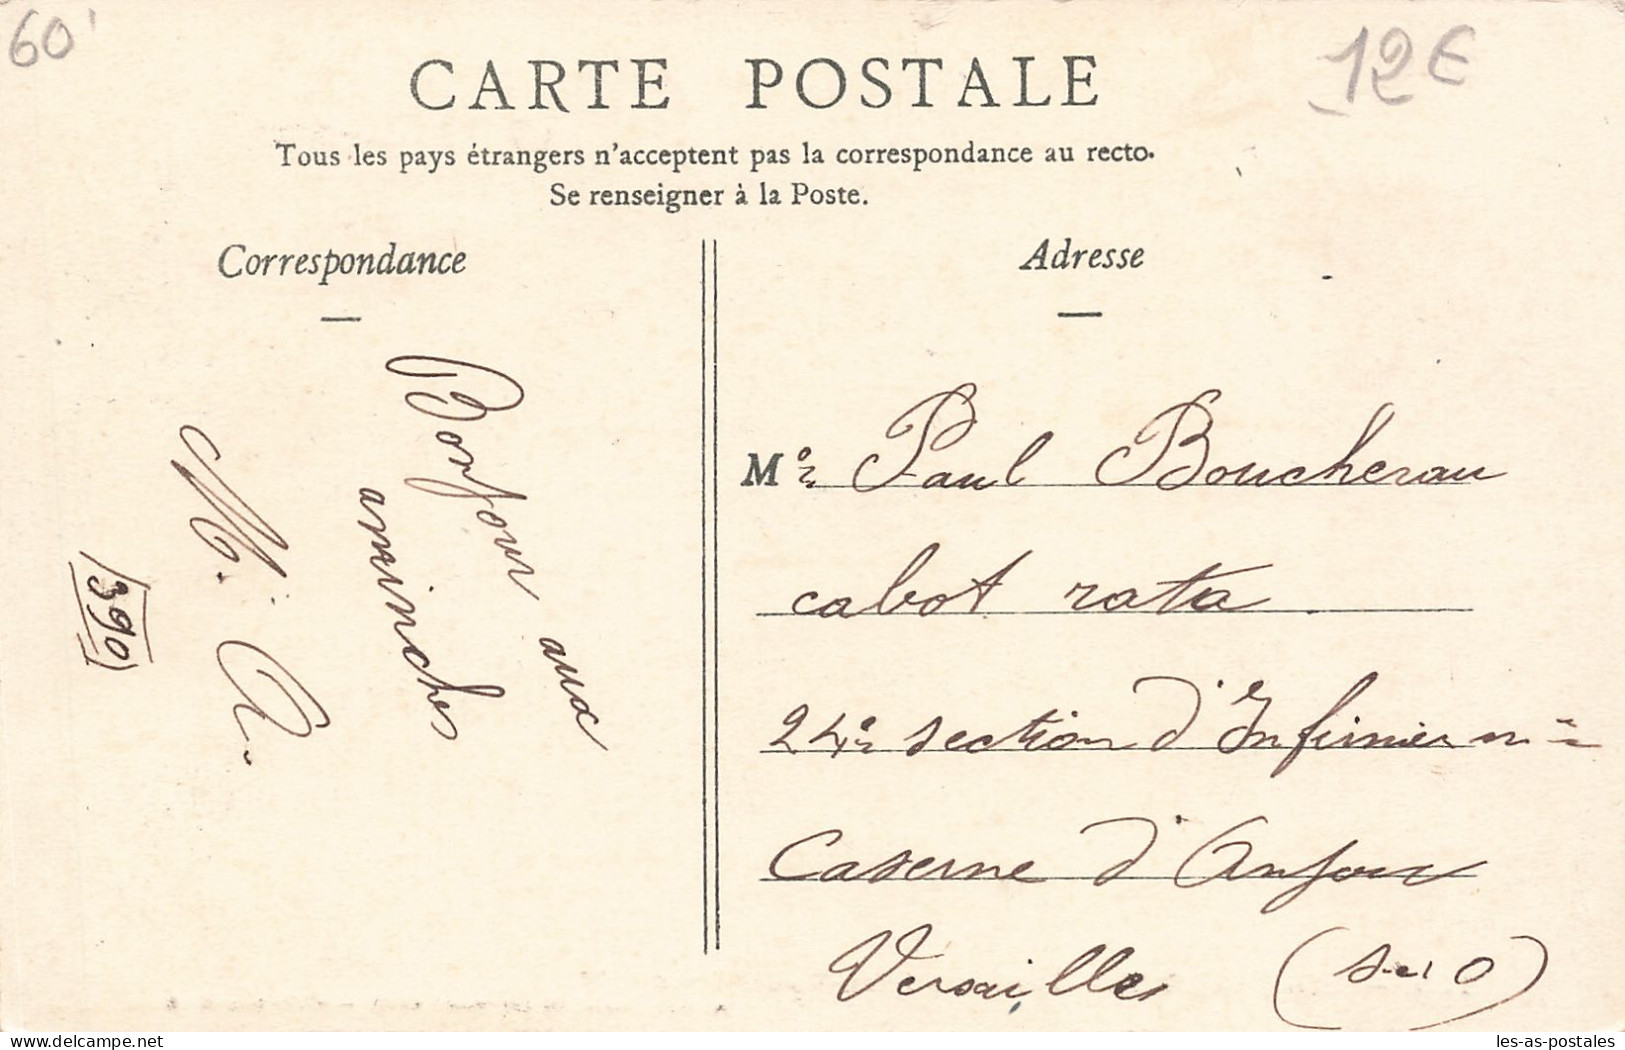 60'
12€
CARTE POSTALE
Tous les pays étrangers n'acceptent pas la correspondance au recto.
Se renseigner à la Poste.
Correspondance
Adresse
Bonjour aux
arsinches
M. A.
390
Mr. Paul Boucherau
cabot rata
24e section d'Infirmier
Caserne d'Anjou
Versailles (S-et O)
delcampe.net
les-as-postales